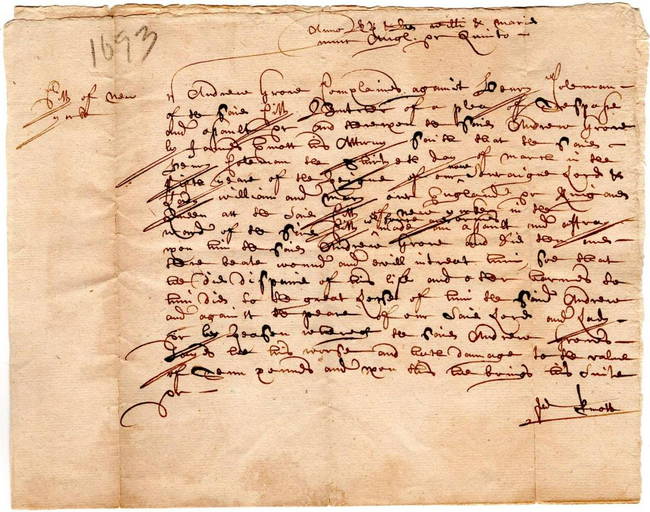 1693
Anno R Rs & Rae Willi & Marie
nunc Angl. &c Quinto
Citt of New
york
Andrew Grove Complaines against Henry Coleman
of the Said Citt of a plea of Trespass
and assault &c and thereupon the Said Andrew Grove
by James Knott his Atturny Saith that the Said
Henry Coleman the day of March in the
fifth yeare of the Reigne of our Soveraigne Lord &
Lady William and Mary over England &c King and
Queen att the Said Citt of New york in the
ward of the Said Citt made an assault and affray
upon him the Said Andrew Grove and did then and
there beate wound and evill intreat him Soe that
he did dispaire of his life and other harmes to
him did to the great of him the Said Andrew
and against the peace of our Said Lord and Lady
for by Reason whereof the Said Andrew Grove
Sayes he is worse and hath damage to the value
of Tenn pounds and upon this he brings his Suite
&c
Ja Knott